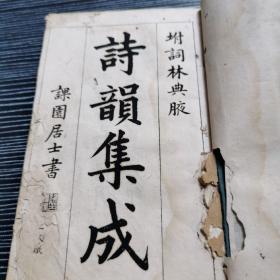 坿詞林典腋
詩韻集成
課園居士書